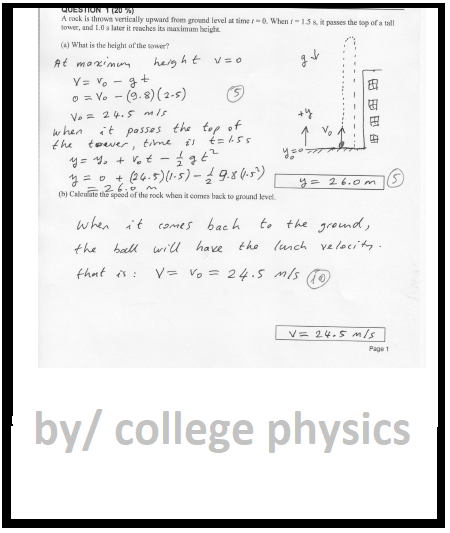 QUESTION 1 (20 %)
A rock is thrown vertically upward from ground level at time t = 0. When t = 1.5 s, it passes the top of a tall
tower, and 1.0 s later it reaches its maximum height.
(a) What is the height of the tower?
At maximum height v=0
V = Vo - g t
0 = Vo - (9.8)(2.5)
(5)
Vo = 24.5 m/s
when it passes the top of
the toewer, time is t=1.5 s
y = yo + Vo t - 1/2 g t²
y = 0 + (24.5)(1.5) - 1/2 9.8 (1.5²)
= 26.0 m
g ↓
+y
Vo
y=0
yo
y = 26.0 m
(5)
(b) Calculate the speed of the rock when it comes back to ground level.
When it comes bach to the ground,
the ball will have the lunch velocity.
that is : V = Vo = 24.5 m/s (10)
V = 24.5 m/s
Page 1
by/ college physics